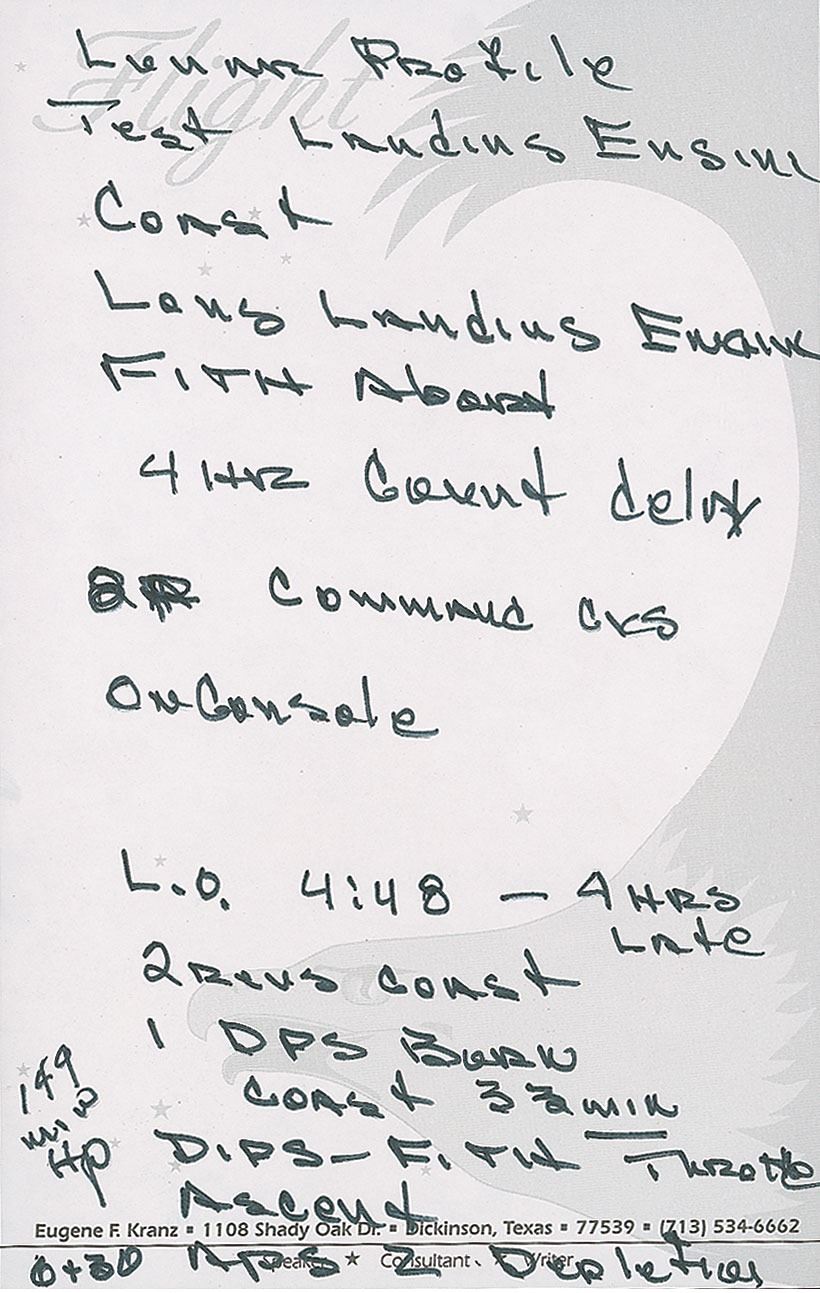 Flight
Lunar Profile
Test Landing Engine
Coast
Long Landing Engine
FITH Abort
4 HR Count delay
Command cks
On Console
L.O. 4:48 — 4 HRS
Late
2 Revs coast
1 DPS Burn
Coast 33 min
149
min
HP
D.PS - FITH Throttle
Ascent
Eugene F. Kranz ▪ 1108 Shady Oak Dr. ▪ Dickinson, Texas ▪ 77539 ▪ (713) 534-6662
Speaker ★ Consultant ★ Writer
6+30 APS 2 Depletion